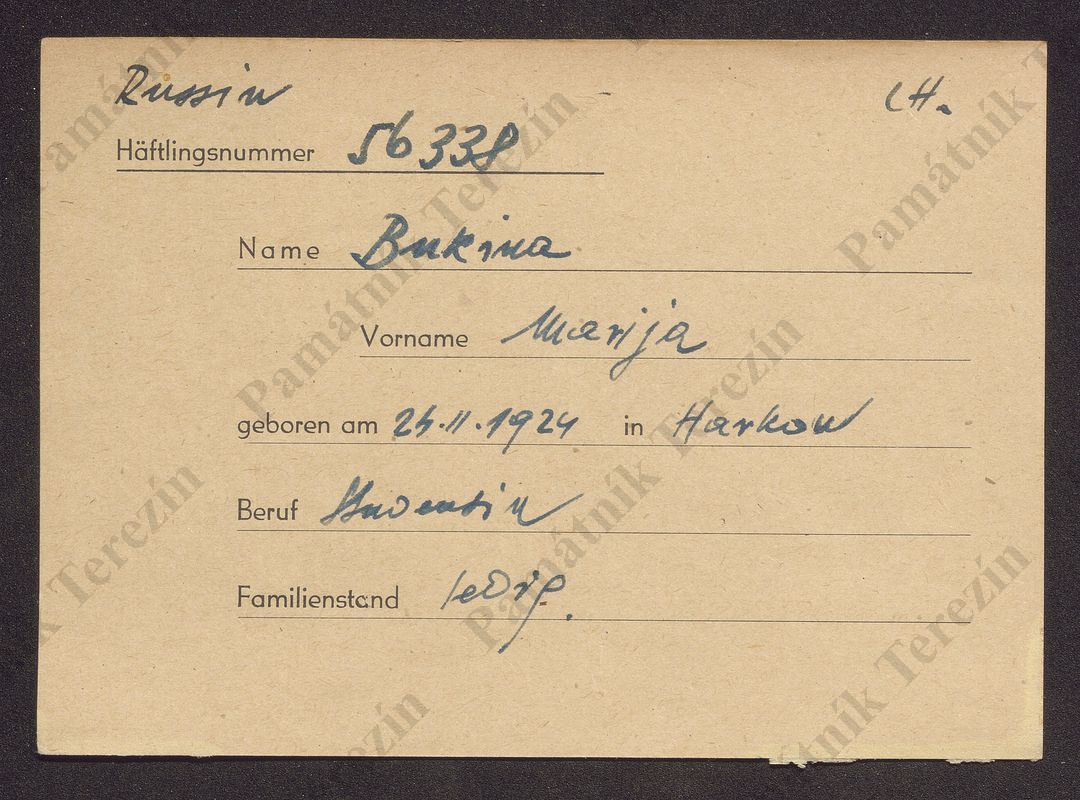 Russin LH.
Häftlingsnummer 56338
Name Bukina
Vorname Marija
geboren am 24.11.1924 in Harkow
Beruf Studentin
Familienstand ledig.
Památník Terezín